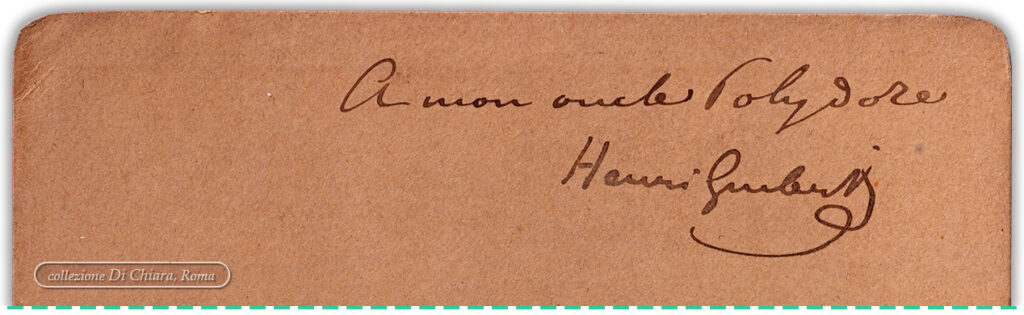 A mon oncle Polydore
Henri Guibert
collezione Di Chiara, Roma